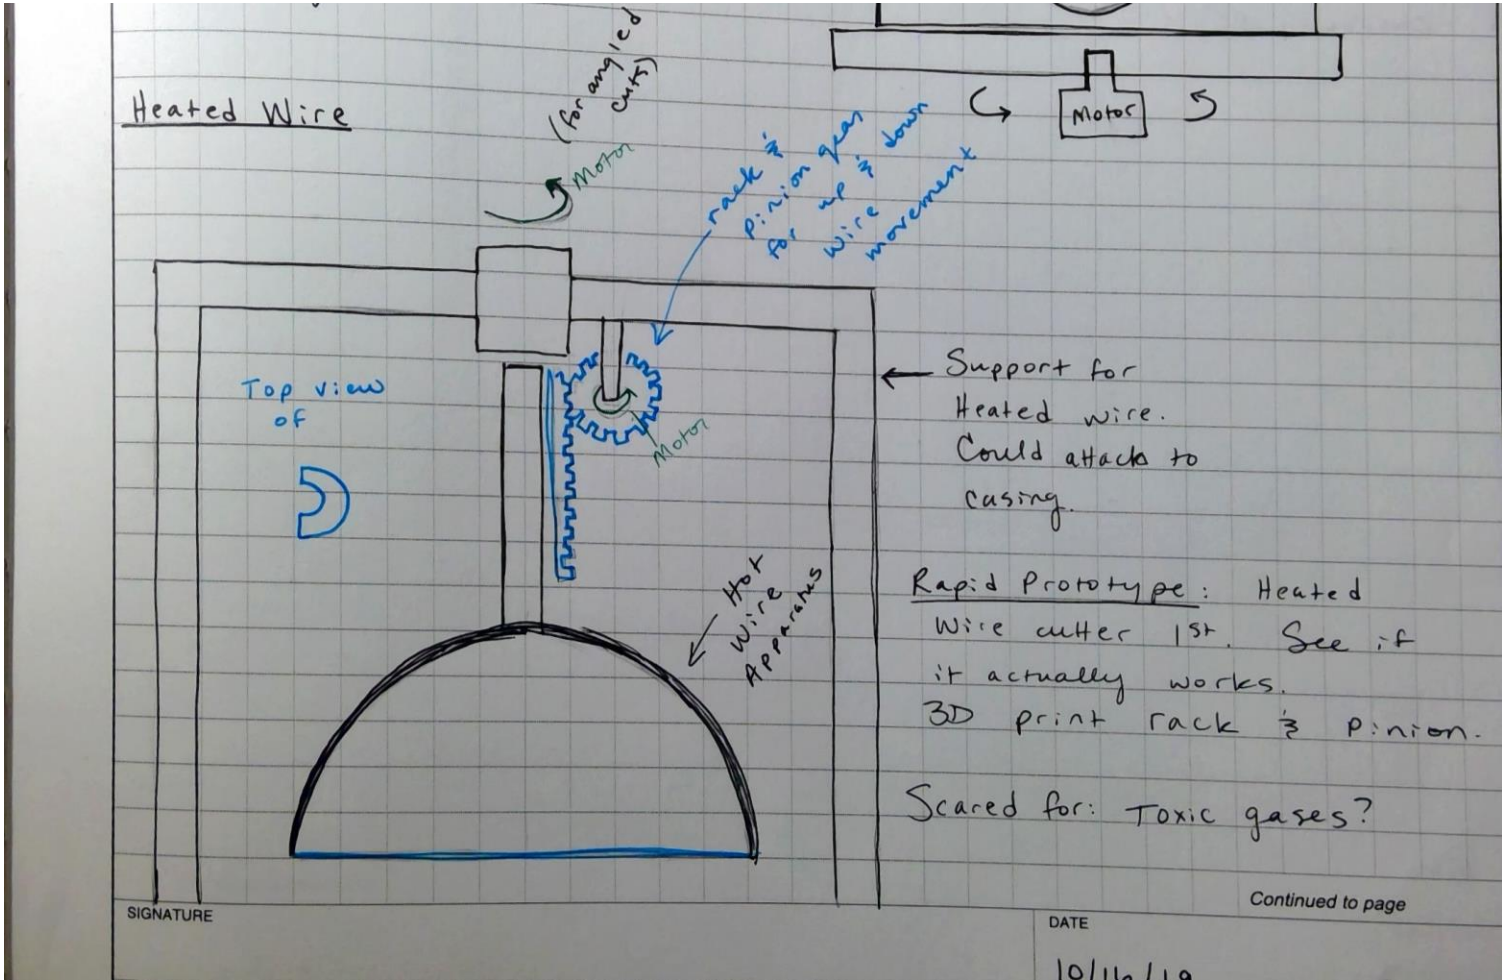 Motor
Heated Wire
(for angled
cuts)
Motor
rack &
pinion gear
for up & down
wire
movement
Top view
of
Motor
Support for
Heated wire.
Could attach to
casing.
Hot
Wire
Apparatus
Rapid Prototype: Heated
Wire cutter 1st. See if
it actually works.
3D print rack & pinion.
Scared for: Toxic gases?
Continued to page
SIGNATURE
DATE
10/16/19